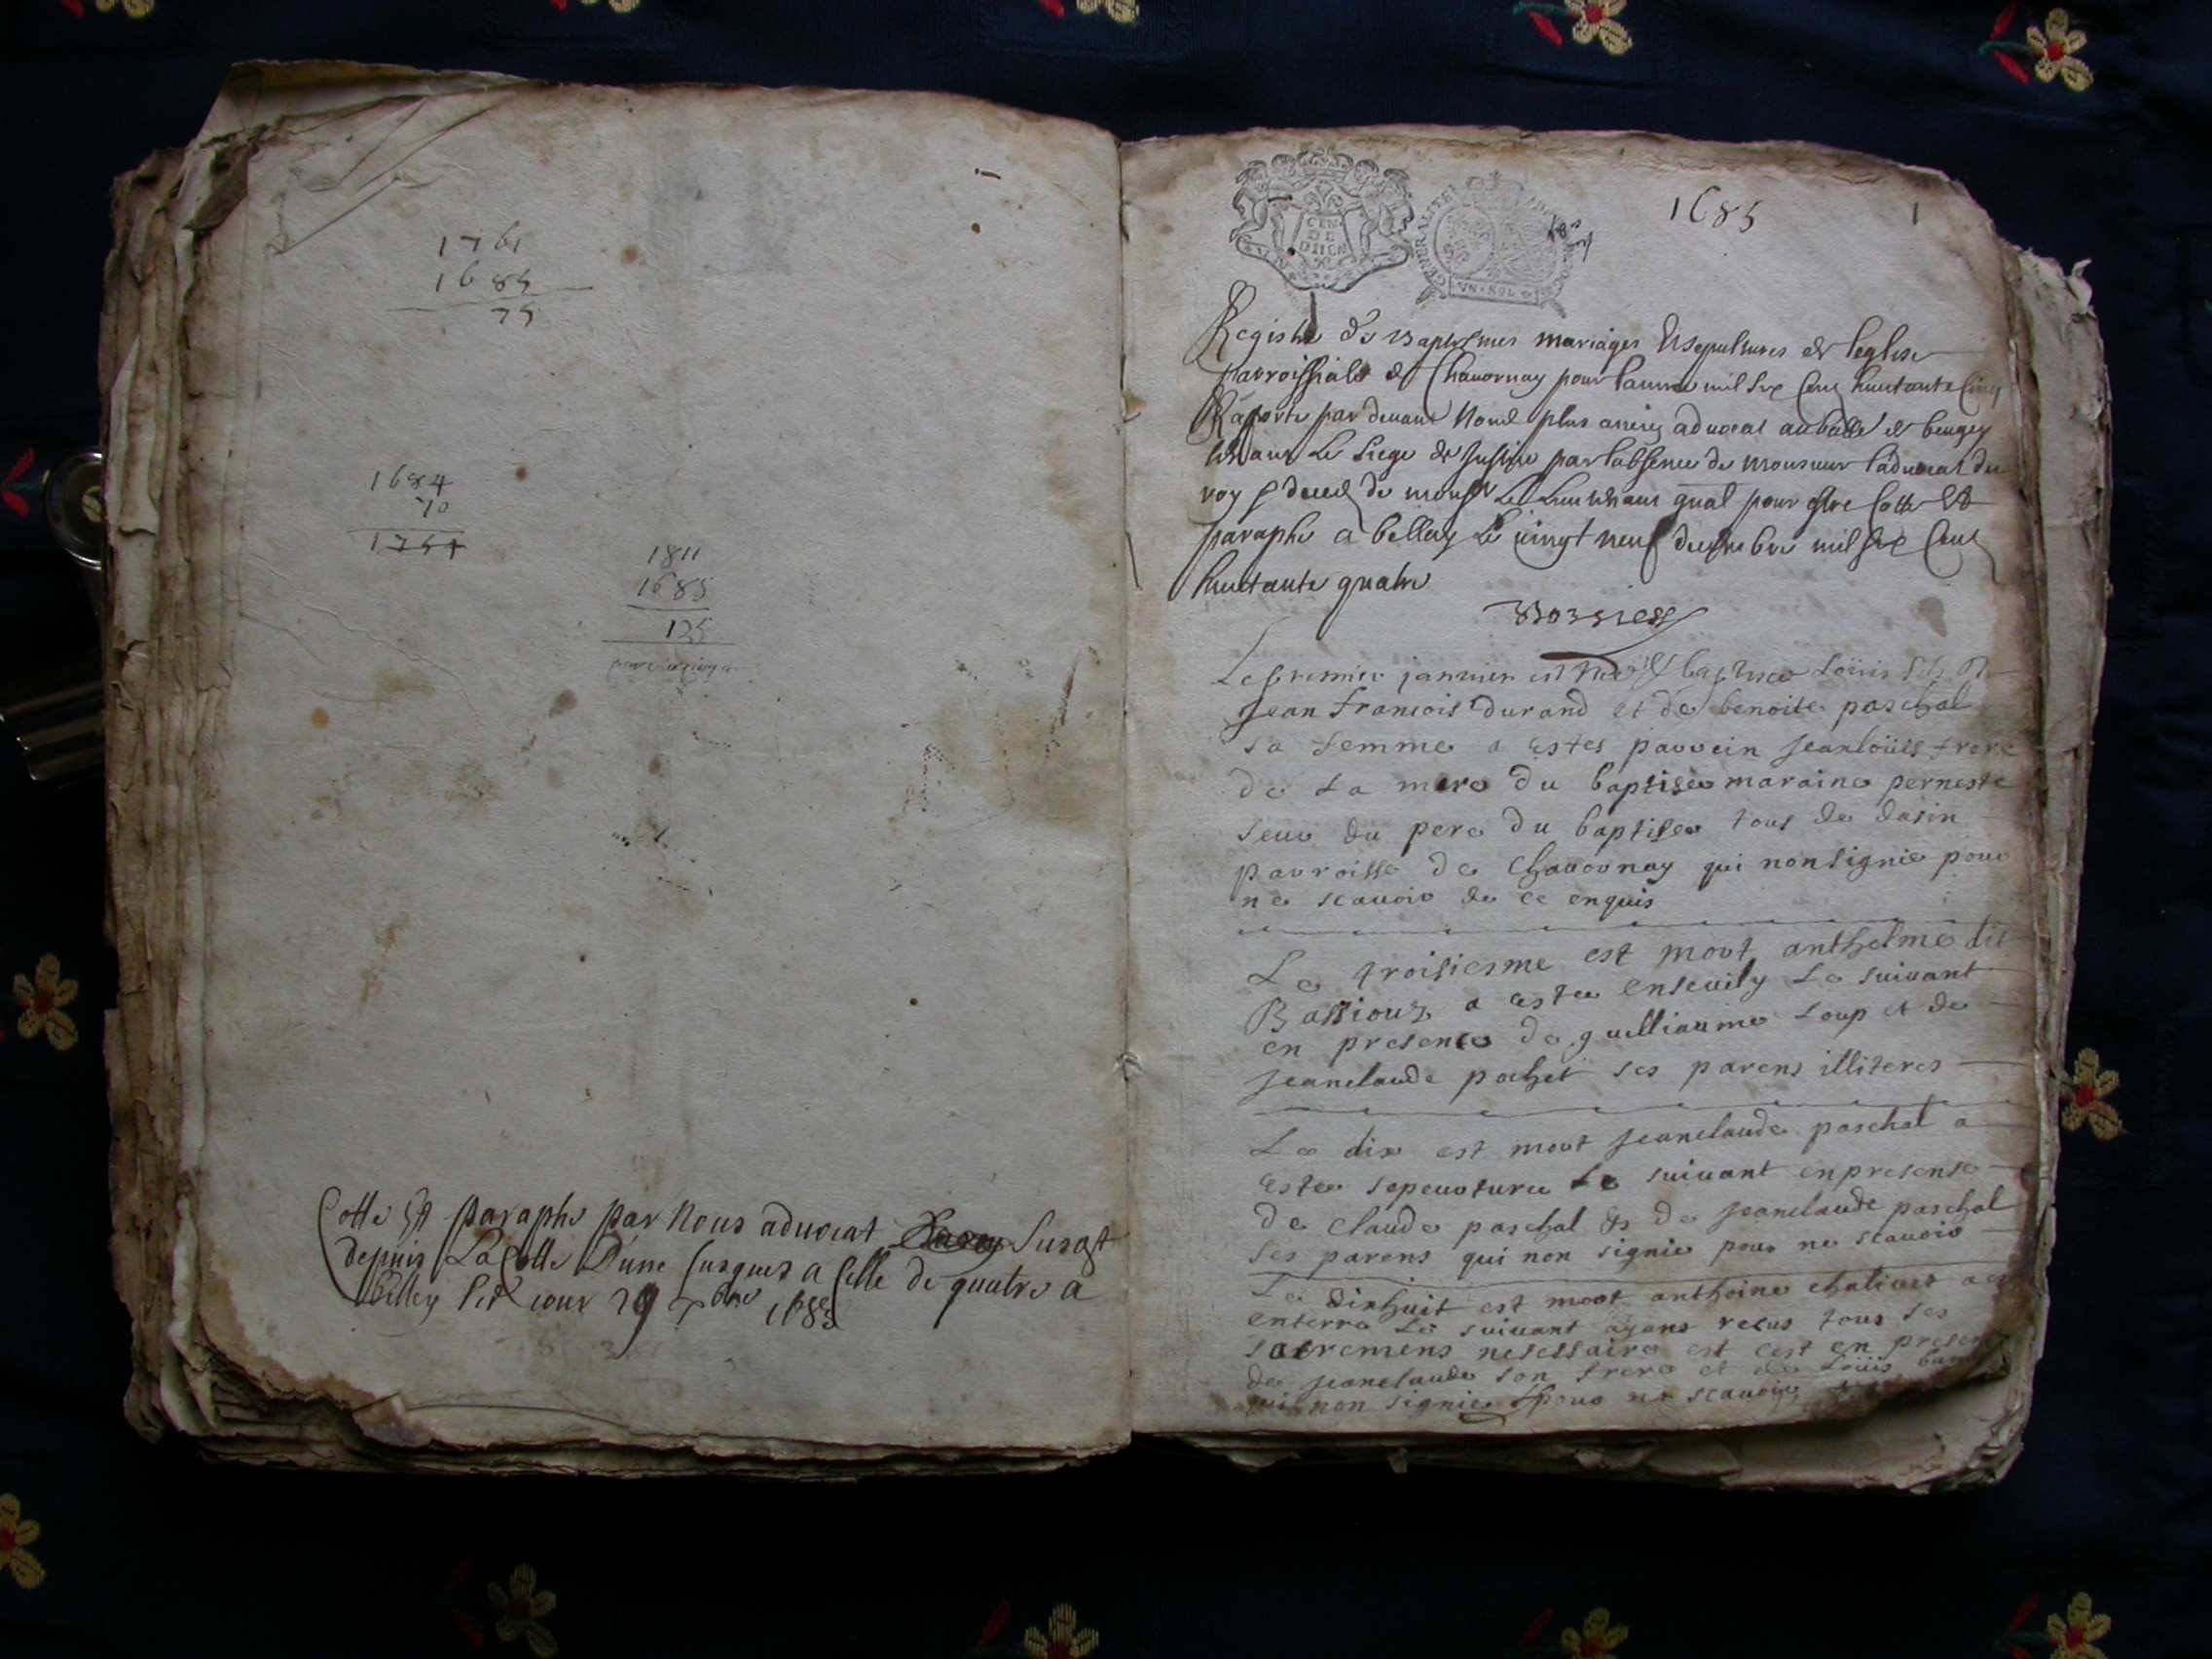 1761
1685
75
1684
70
1754
1811
1685
125
Cotte et paraphe par Nous advocat Susdt
depuis La Cotte D'une Jusques a Celle de quatre a
Belley le jour 29 xbre
GENERALITE
VN SOL
1685
1
Registre des Baptesmes mariages et sepultures de leglise
parroissiale de Chavornay pour lannee mil six Cens huictante Cinq
Raporte par devant Nous plus ancien advocat au balle de beugey
tenant Le siege de Justice par labsence de monsieur ladvocat du
roy deces de Le Lieutenant gnal pour estre Cotte et
paraphe a belley Le vingt neuf decembre mil six Cens
huictante quatre
Le premier janvier est né et baptisee Loüis fils de
Jean francois Durand et de benoite paschal
sa femme a estes parrein jean loüis frere
de La mere du baptisee maraine perneste
seur du pere du baptisee tous de dasin
parroisse de Chavornay qui non signie pour
ne scavoir de ce enquis
Le troisiesme est mort anthelme dit
a estee ensevily Le suivant
en presence de guelliaume Loup et de
jeanclaude pochet ses parens illiteres
Le dix est mort jeanclaude paschal a
estee sepeuoturee Le suivant en presense
de Claude paschal et de jeanclaude paschal
ses parens qui non signie pour ne scavoir
Le dixhuit est mort anthoine chalives a
enterre Le suivant ayans recus tous ses
sacremens nesessaire est cest en presen
de jeanclaude son frere et de Loüis
qui non signie pour ne scavoir